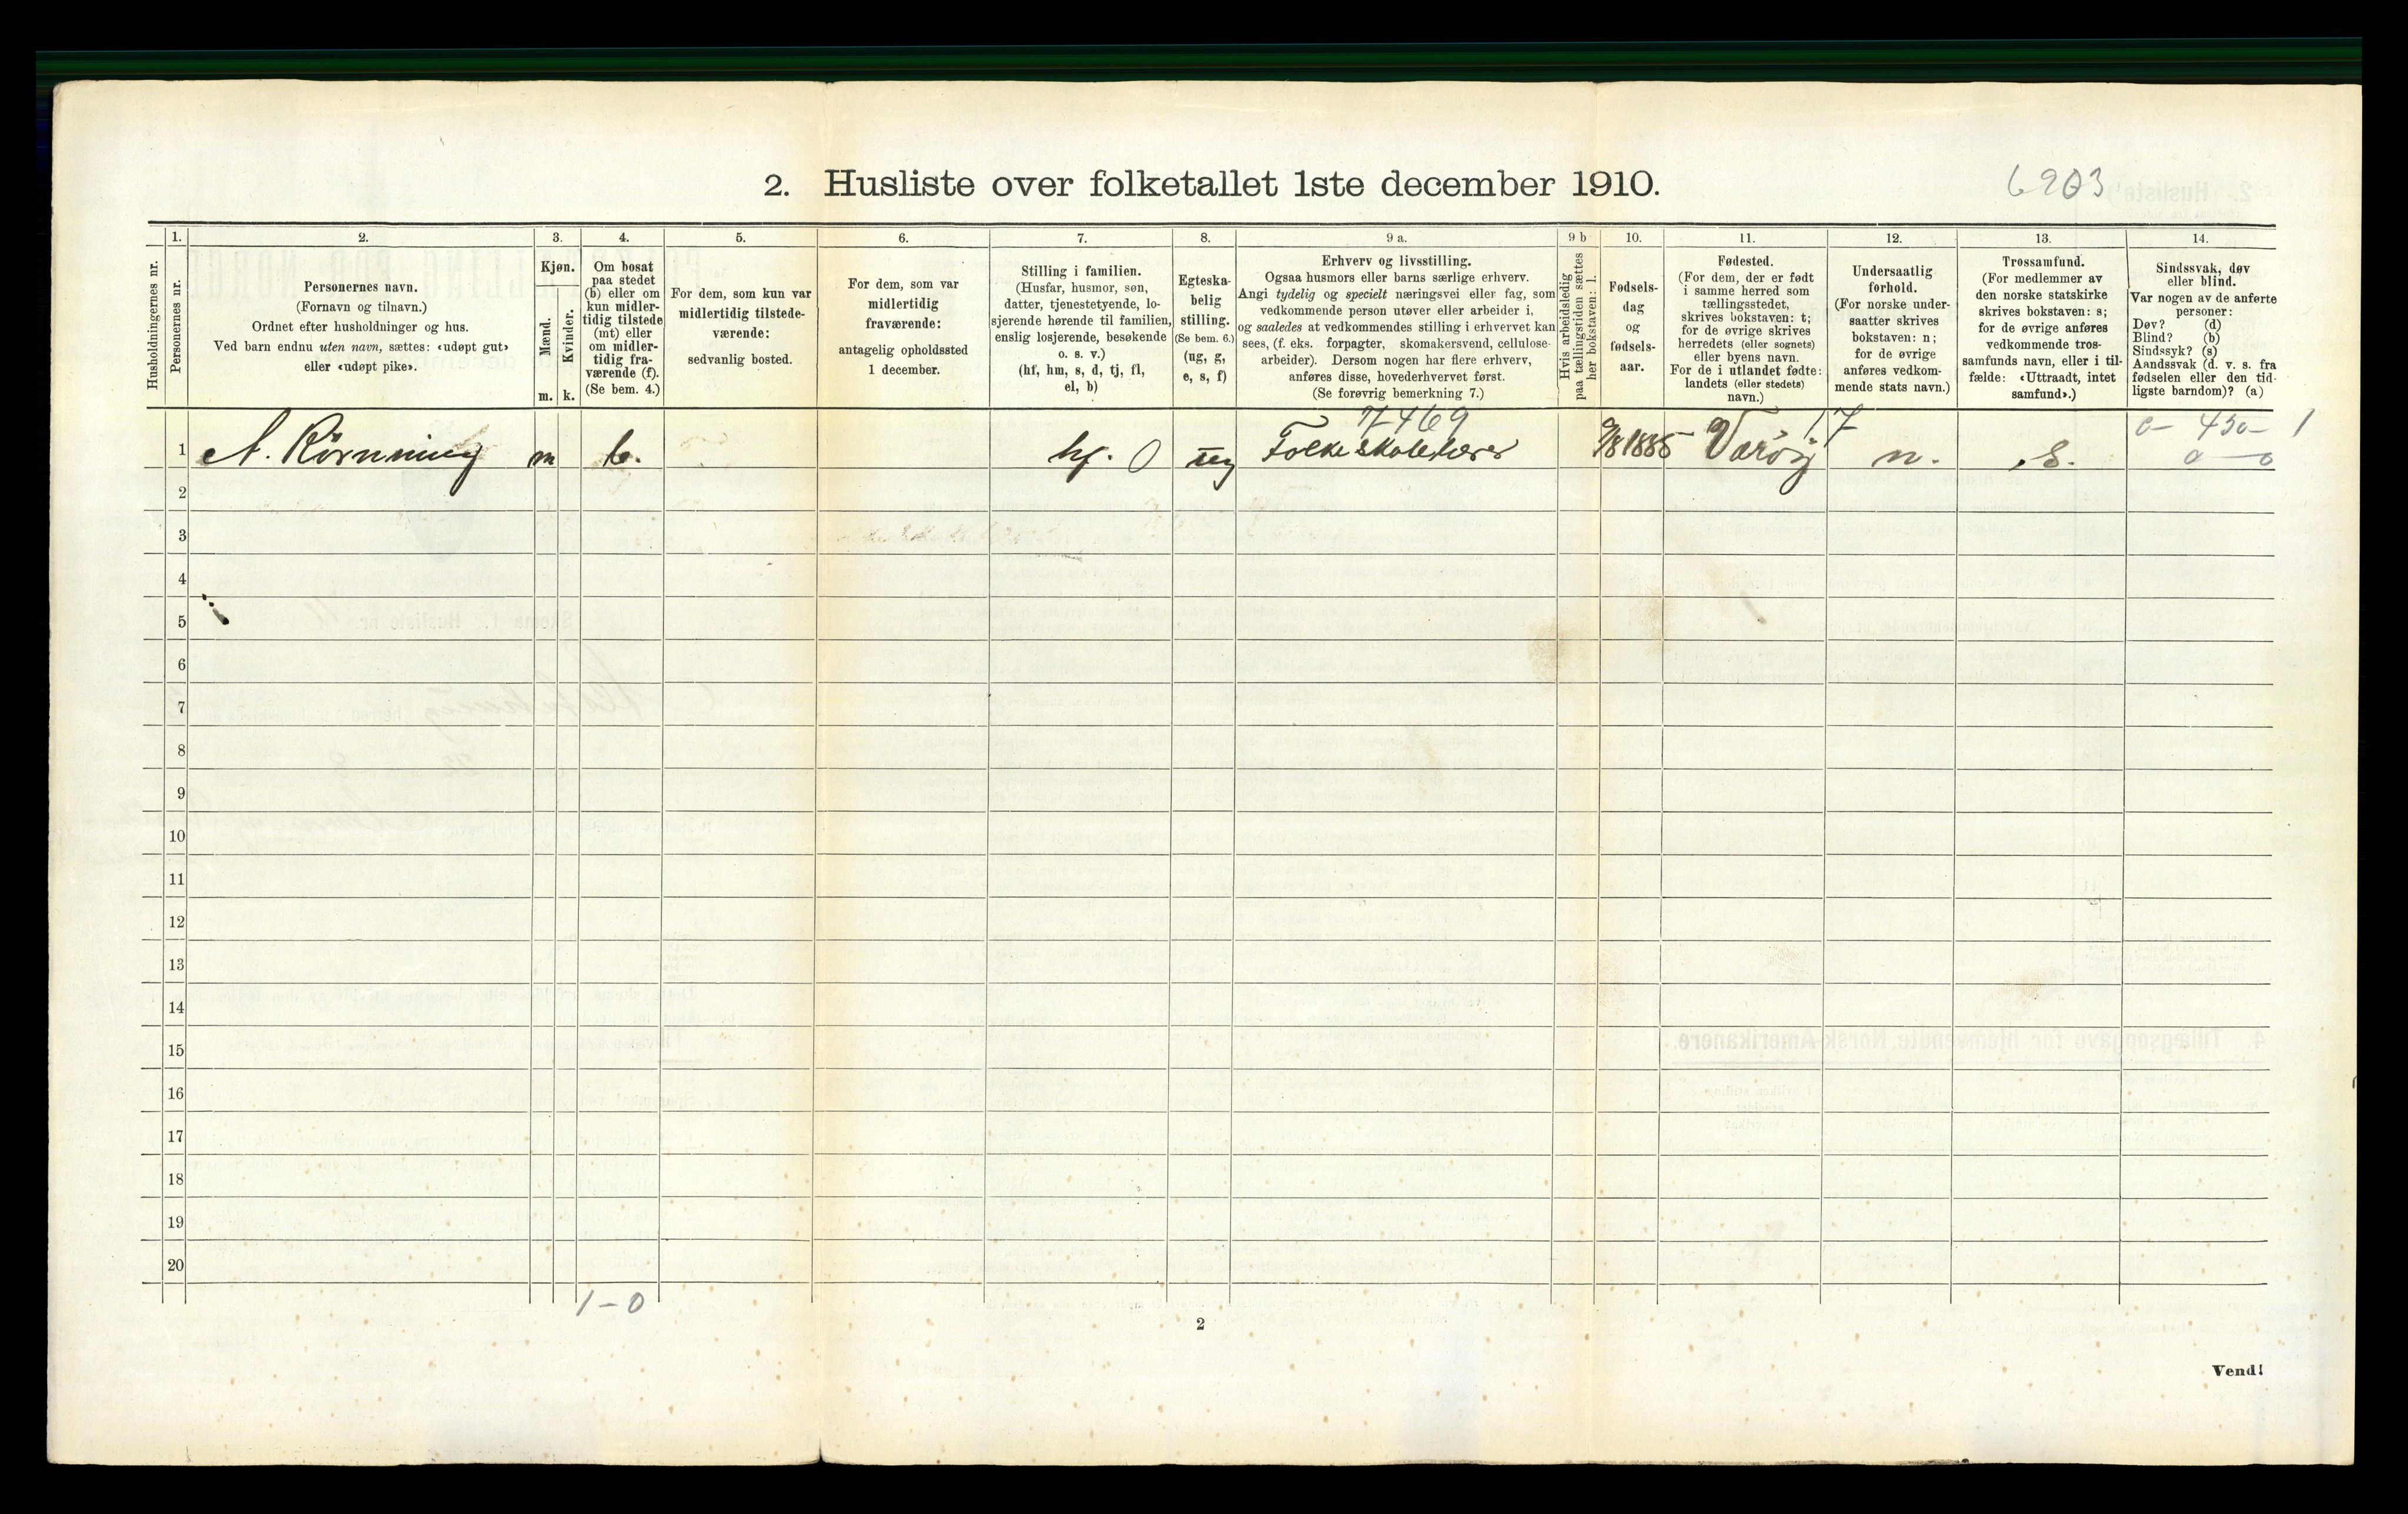 2. Husliste over folketallet 1ste december 1910.
6903
Husholdningernes nr.
1.
Personernes nr.
2.
Personernes navn.
(Fornavn og tilnavn.)
Ordnet efter husholdninger og hus.
Ved barn endnu uten navn, sættes: «udøpt gut»
eller «udøpt pike».
3.
Kjøn.
Mænd.
Kvinder.
m. k.
4.
Om bosat
paa stedet
(b) eller om
kun midler-
tidig tilstede
(mt) eller
om midler-
tidig fra-
værende (f).
(Se bem. 4.)
5.
For dem, som kun var
midlertidig tilstede-
værende:
sedvanlig bosted.
6.
For dem, som var
midlertidig
fraværende:
antagelig opholdssted
1 december.
7.
Stilling i familien.
(Husfar, husmor, søn,
datter, tjenestetyende, lo-
sjerende hørende til familien,
enslig losjerende, besøkende
o. s. v.)
(hf, hm, s, d, tj, fl,
el, b)
8.
Egteska-
belig
stilling.
(Se bem. 6.)
(ug, g,
e, s, f)
9 a.
Erhverv og livsstilling.
Ogsaa husmors eller barns særlige erhverv.
Angi tydelig og specielt næringsvei eller fag, som
vedkommende person utøver eller arbeider i,
og saaledes at vedkommendes stilling i erhvervet kan
sees, (f. eks. forpagter, skomakersvend, cellulose-
arbeider). Dersom nogen har flere erhverv,
anføres disse, hovederhvervet først.
(Se forøvrig bemerkning 7.)
9 b
Hvis arbeidsledig
paa tællingstiden sættes
her bokstaven: l.
10.
Fødsels-
dag
og
fødsels-
aar.
11.
Fødested.
(For dem, der er født
i samme herred som
tællingsstedet,
skrives bokstaven: t;
for de øvrige skrives
herredets (eller sognets)
eller byens navn.
For de i utlandet fødte:
landets (eller stedets)
navn.)
12.
Undersaatlig
forhold.
(For norske under-
saatter skrives
bokstaven: n;
for de øvrige
anføres vedkom-
mende stats navn.)
13.
Trossamfund.
(For medlemmer av
den norske statskirke
skrives bokstaven: s;
for de øvrige anføres
vedkommende tros-
samfunds navn, eller i til-
fælde: «Uttraadt, intet
samfund».)
14.
Sindssvak, døv
eller blind.
Var nogen av de anførte
personer:
Døv? (d)
Blind? (b)
Sindssyk? (s)
Aandssvak (d. v. s. fra
fødselen eller den tid-
ligste barndom)? (a)
7469
17
0- 450- 1
1 A. Rørnming m b. hf. 0 ug Folkeskolelærer 9/8 1885 Værøy n. s. 0-0
2
3
4
5
6
7
8
9
10
11
12
13
14
15
16
17
18
19
20
1-0
2
Vend!